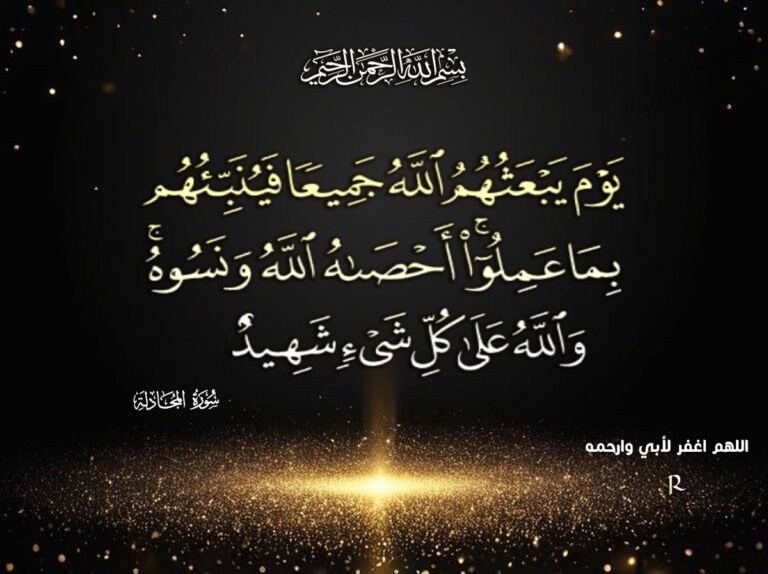 بِسْمِ اللَّهِ الرَّحْمَٰنِ الرَّحِيمِ
يَوْمَ يَبْعَثُهُمُ ٱللَّهُ جَمِيعًا فَيُنَبِّئُهُم
بِمَا عَمِلُوٓا۟ ۚ أَحْصَىٰهُ ٱللَّهُ وَنَسُوهُ ۚ
وَٱللَّهُ عَلَىٰ كُلِّ شَىْءٍ شَهِيدٌ
سُورَةُ المُجَادلة
اللهم اغفر لأبي وارحمه
R